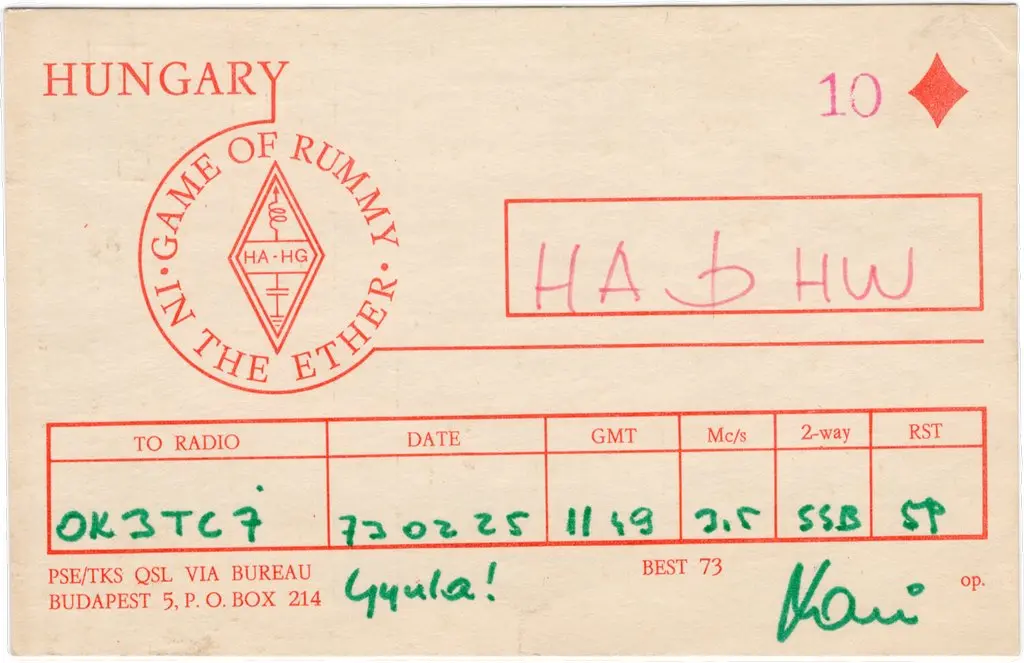 HUNGARY
10
GAME OF RUMMY
IN THE ETHER
HA-HG
HA HW
TO RADIO DATE GMT Mc/s 2-way RST
73 02 25 11 49 3.5 SSB
PSE/TKS QSL VIA BUREAU
BUDAPEST 5, P. O. BOX 214
Gyula!
BEST 73
op.